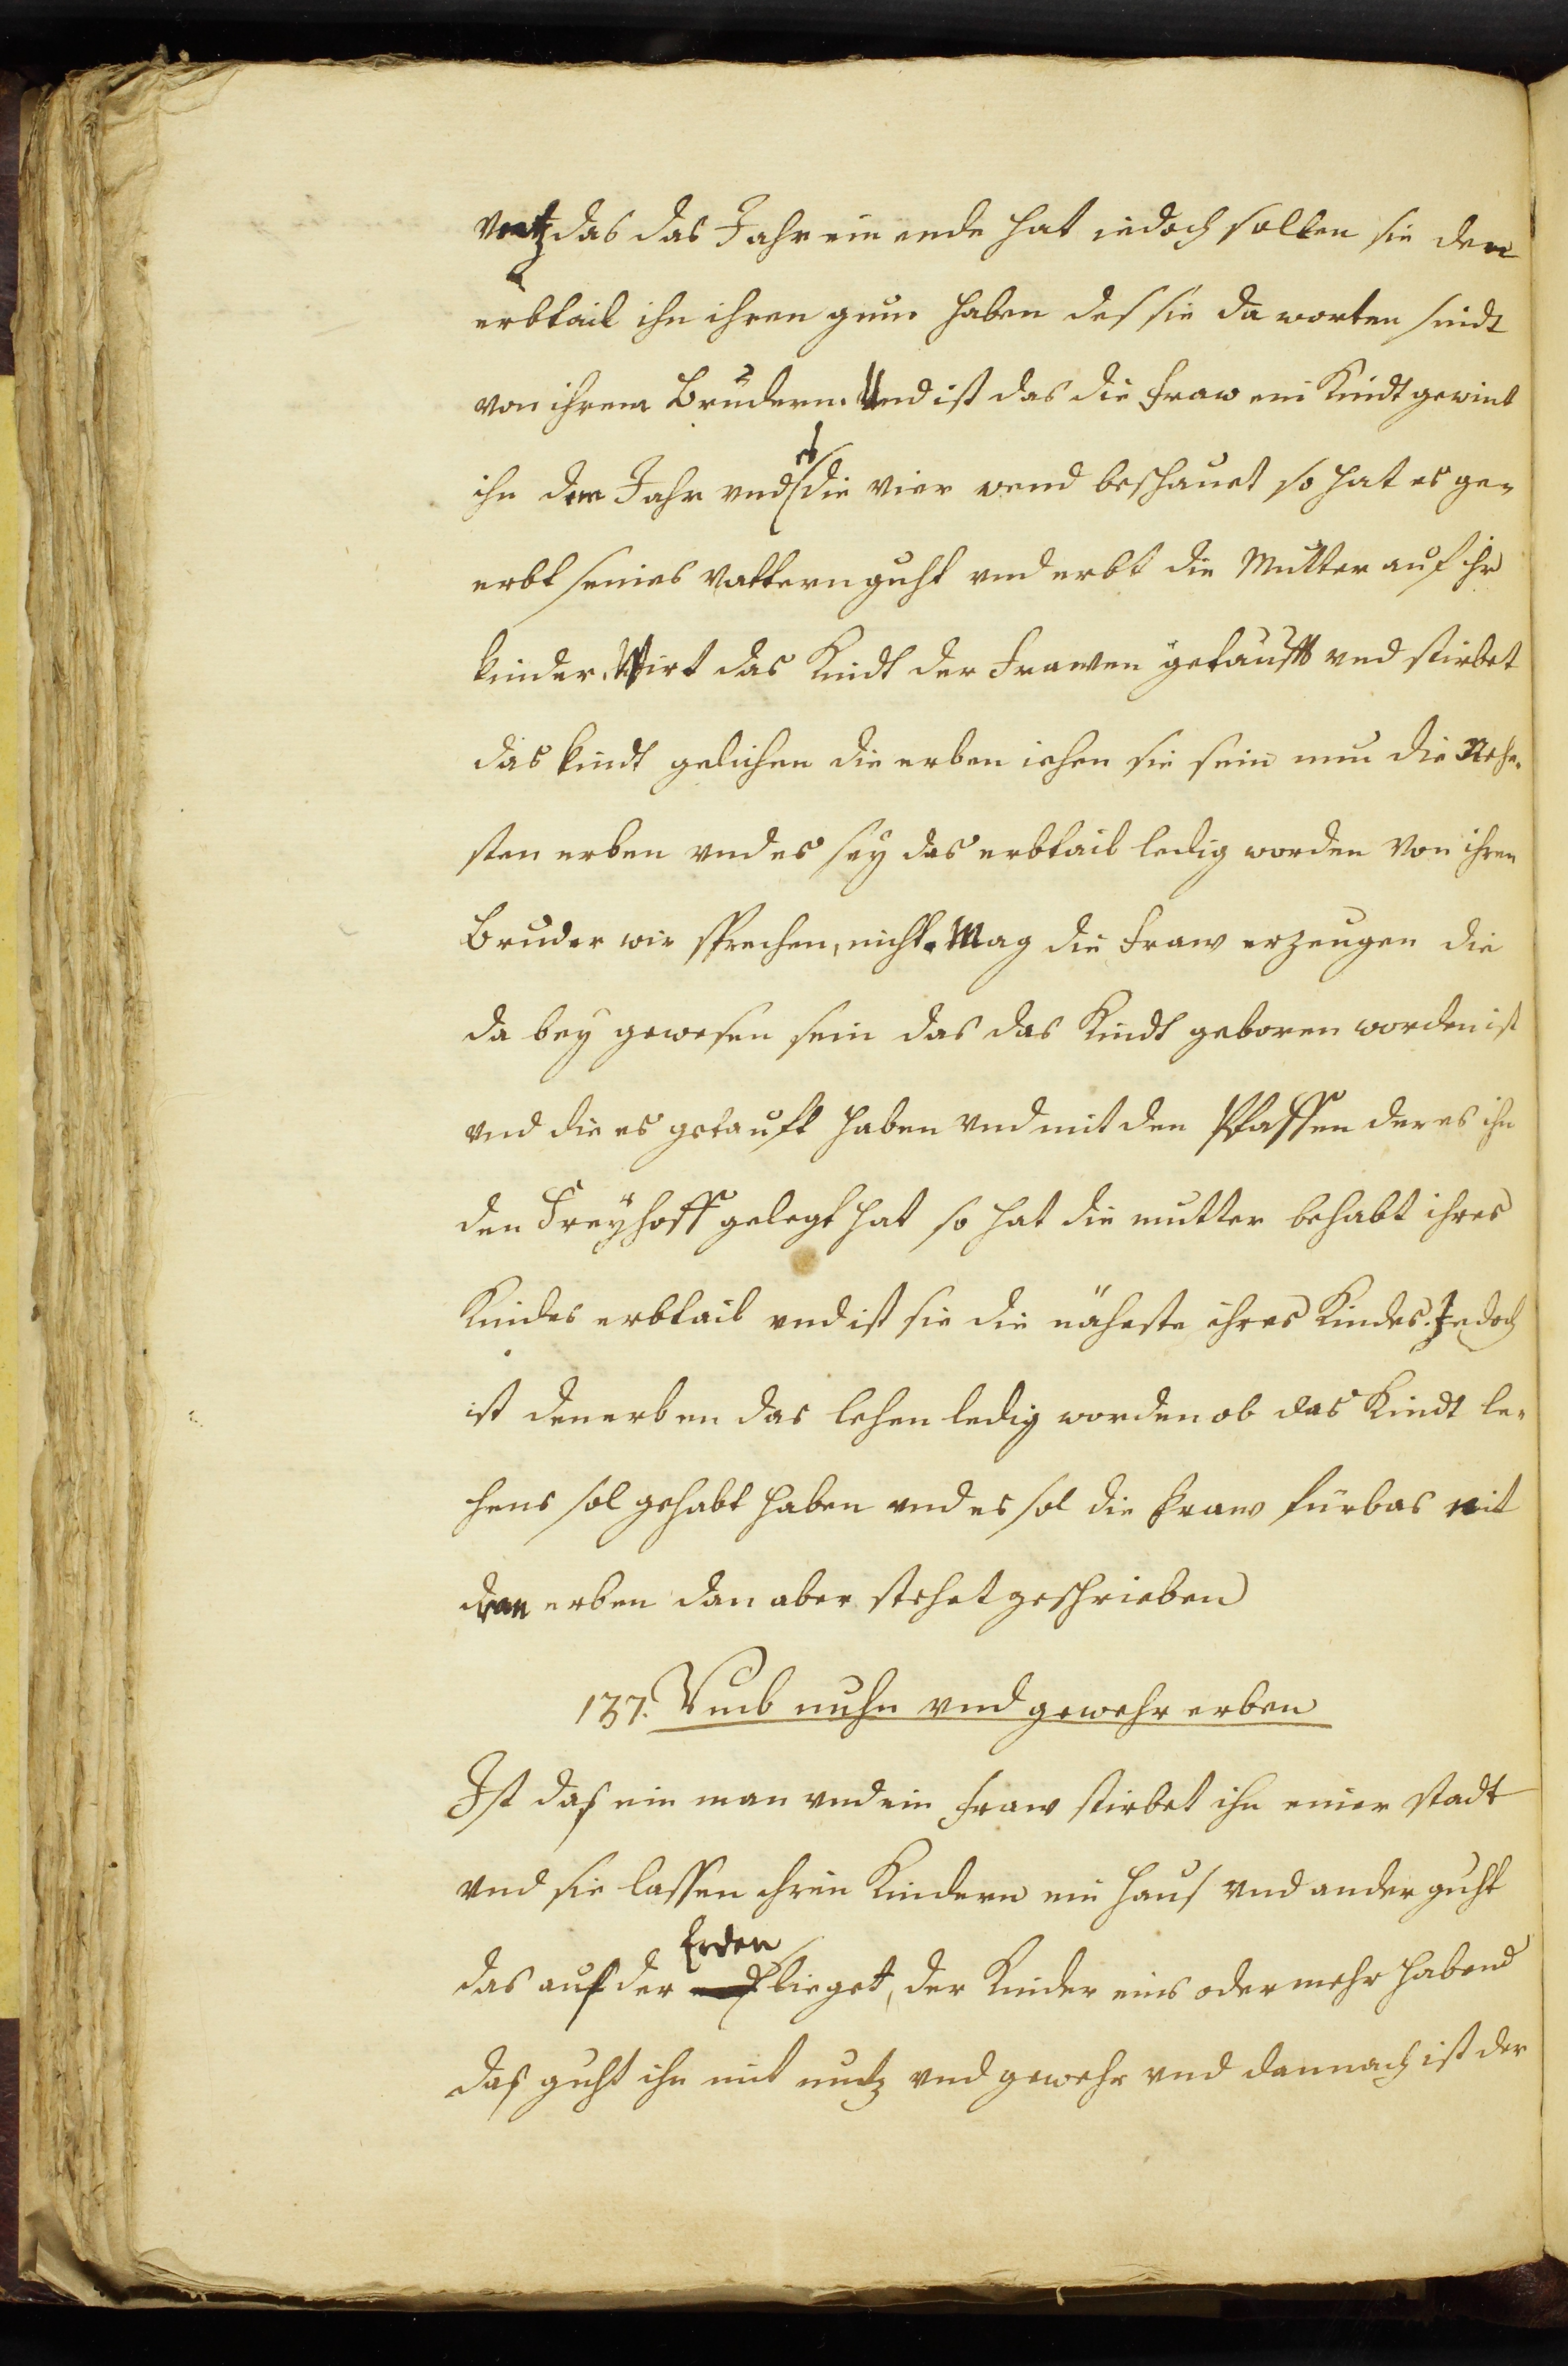 vntz das das Jahr ein ende hat iedoch sollen sie den
erbtail ihn ihren gwer haben des sie da worten sindt
von ihrem Brudern. Und ist das die fraw ein Kindt gewint
ihn dem Jahr vnd es die vier wend beschauet so hat es ge-
erbt seines vattern guht vnd erbt die Mutter auf ihr
kinder. Wirt das Kindt der Frawen getaufft vnd stirbet
das kindt gelichen die erben iehen sie sein nun die Nehe-
sten erben vnd es sey das erbtail ledig worden von ihren
Bruder wir sprechen, nicht. Mag die fraw erzeugen die
da bey gewesen sein das das Kindt geboren worden ist
vnd die es getauft haben vnd mit den Pfaffen der es ihn
den Freyhoff gelegt hat so hat die mutter behabt ihres
Kindes erbtail vnd ist sie die näheste ihres Kindes. Jedoch
ist den erben das lehen ledig worden ob das Kindt le-
hens sol gehabt haben vnd es sol die fraw fürbas nit
dran erben dan aber stehet geschrieben
137. Vmb nuhn vnd gewehr erben
Ist daß ein man vnd ein fraw stirbet ihn einer stadt
vnd sie lassen ihren Kindern ein hauß vnd ander guht
das auf der Erden lieget, der Kinder eins oder mehr habend
daß guht ihn mit nutz vnd gewehr vnd dannach ist der